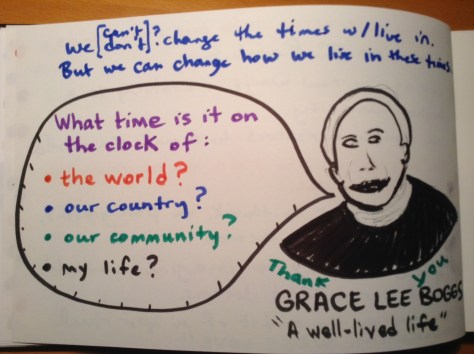 we [can't
don't]? change the times w/live in.
But we can change how we live in these times.
What time is it on
the clock of:
• the world?
• our country?
• our community?
• my life?
Thank you
GRACE LEE BOGGS
"A well-lived life"